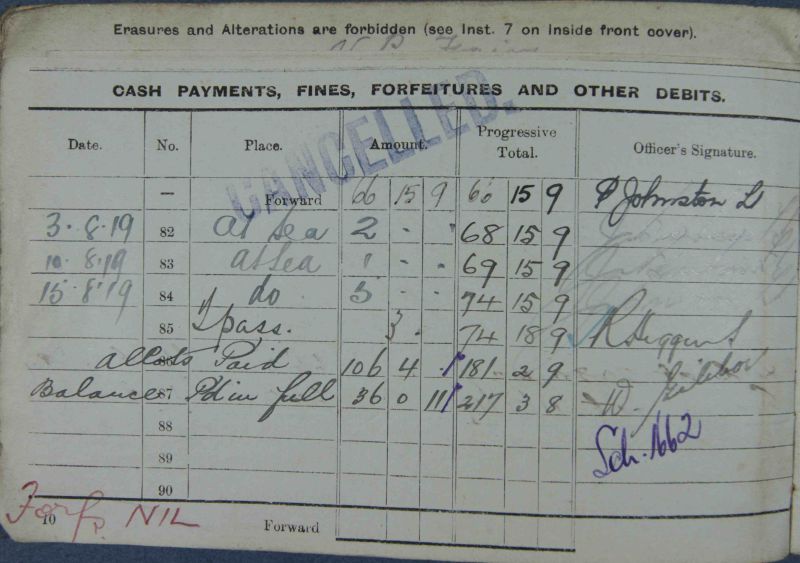 Erasures and Alterations are forbidden (see Inst. 7 on inside front cover).
CASH PAYMENTS, FINES, FORFEITURES AND OTHER DEBITS.
CANCELLED.
Date. No. Place. Amount. Progressive Total. Officer's Signature.
— Forward 66 15 9 66 15 9 P Johnston Lt
3.8.19 82 At Sea 2 - - 68 15 9
10.8.19 83 at Sea 1 - - 69 15 9
15.8.19 84 do 5 - - 74 15 9
85 pass. 3 - 74 18 9 R Higgins
86 allots Paid 106 4 - 181 2 9 W.
Balance 87 Pd in full 36 0 11 217 3 8
88
89 Sch. 1662
90
Forfs. NIL
10 Forward